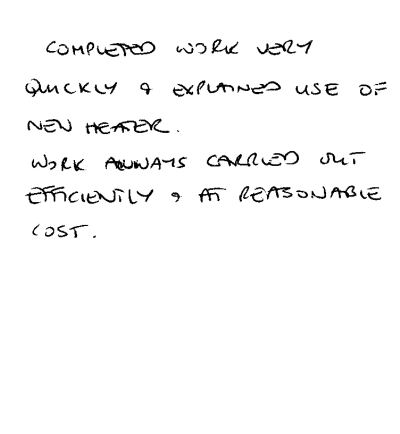 COMPLETED WORK VERY
QUICKLY & EXPLAINED USE OF
NEW HEATER.
WORK ALWAYS CARRIED OUT
EFFICIENTLY & AT REASONABLE
COST.